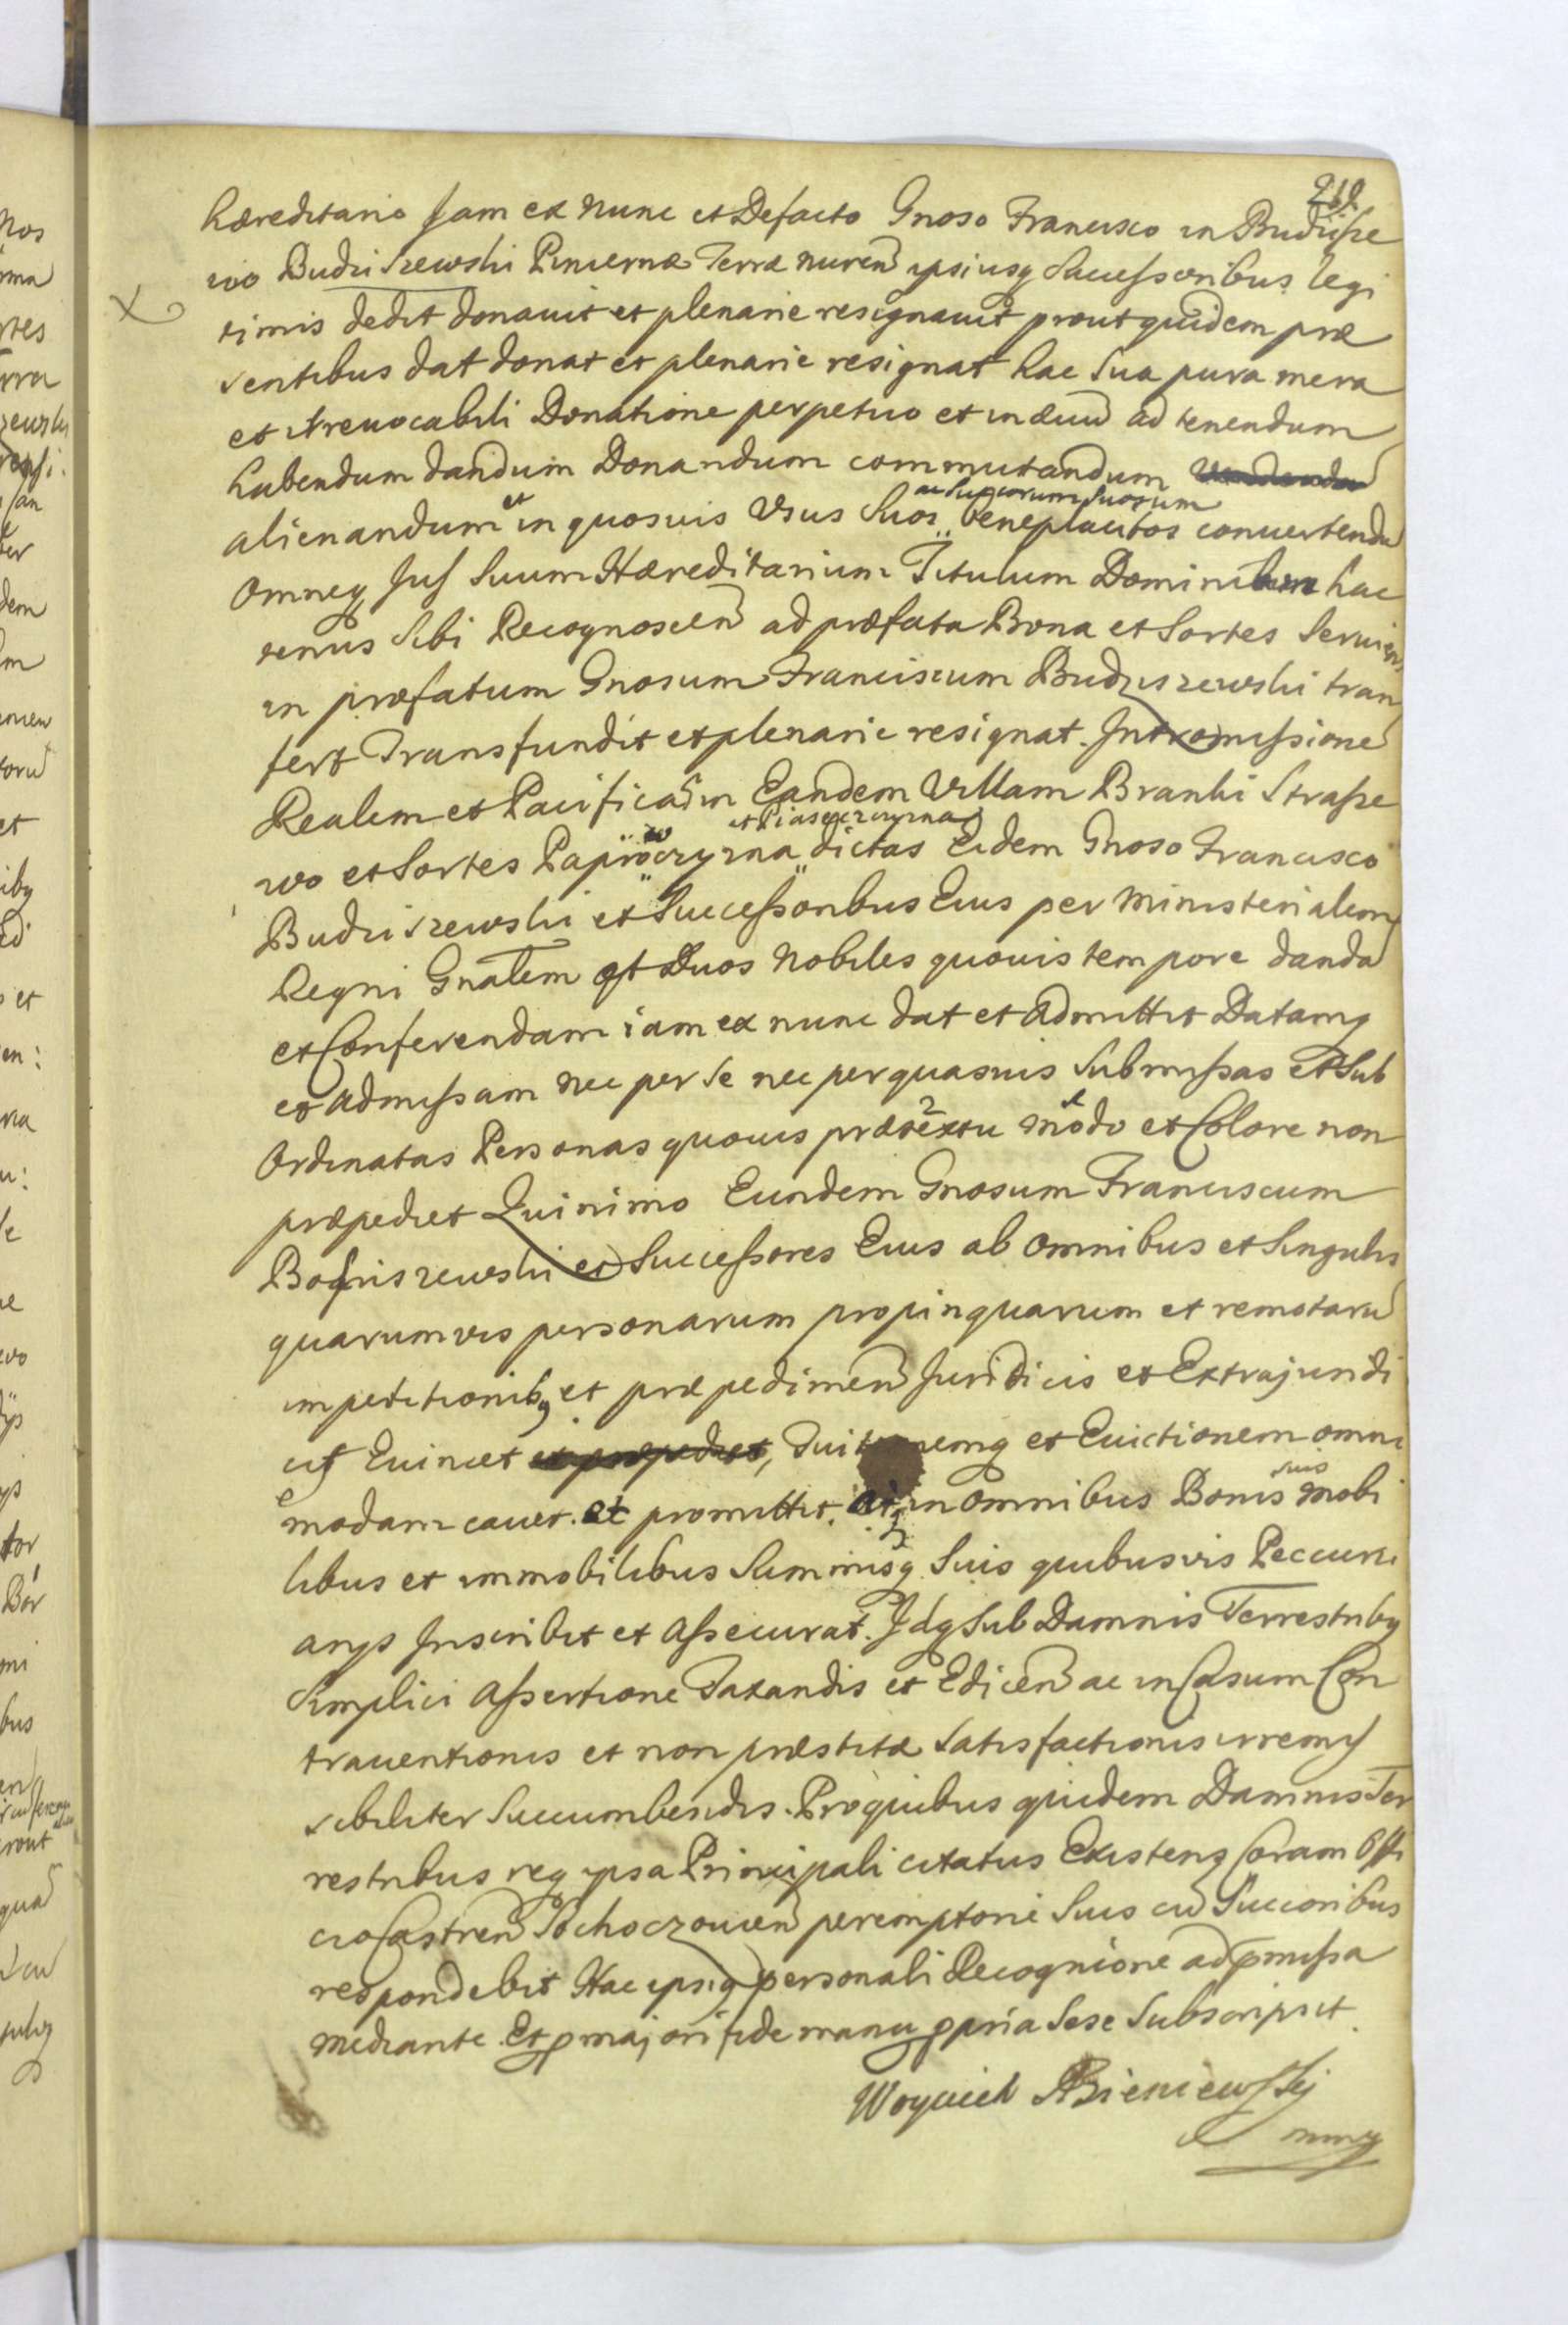 Hæreditario Jam ex nunc et Defacto Gnoso Francisco in Budzisze
wo Budziszewski Pincernæ Terræ nuren ipsiusq Successoribus legi
timis dedit donauit et plenarie resignauit prout quidem præ
sentibus dat donat et plenarie resignat hac Sua pura mera
et irreuocabili Donatione perpetuo et in æuu ad tenendum
habendum dandum Donandum commutandum
alienandum et in quosuis Vsus Suos ac Succorum Suorum beneplacitos conuertendu
Omneq Jus Suum Hæreditarium Titulum Dominium hac
tenus Sibi Recognoscen ad præfata Bona et Sortes Seruien
in præfatum Gnosum Franciscum Budziszewski trans
fert Transfundit et plenarie resignat. Intromissione
Realem et Pacificam in Eandem Villam Branki Strasze
wo et Sortes Paprocczyzna et Piaseczczyzna dictas Eidem Gnoso Francisco
Budziszewski et Successoribus Eius per Ministerialem
Regni Gnalem et Duos Nobiles quouis tempore danda
et Conferendam iam ex nunc dat et Admittit Datamq
et Admissam nec per Se nec per quasuis Submissas et Sub
Ordinatas Personas quouis prætextu modo et Colore non
præpediet Quinimo Eundem Gnosum Franciscum
Bogriszewski et Successores Eius ab Omnibus et Singulis
quarumvis personarum propinquarum et remotaru
impetitionibq et præpedimen Juridicis et Extrajuridi
cis Euincet et præpediet, emq et Euictionem omni
modam cauet. et promittit. in Omnibus Bonis suis mobi
libus et immobilibus Summisq Suis quibusvis Pecuni
arys Inscribit et Assecurat. Idq Sub Damnis Terrestribq
Simplici Assertione Taxandis et Edicen ac in Casum Con
trauentionis et non præstitæ Satisfactionis irremis
sibiliter Succumbendis. Pro quibus quidem Damnis Ter
restribus req ipsa Principali citatus Existens Coram Offi
cio Castren Sochoczouien peremptorie Suis cu Succoribus
respondebit Hac ipsiq personali Recognicione ad pmissa
mediante. Et p majori fide manu ppria Sese Subscripsit.
Woyciech Bieniewskj
mmp